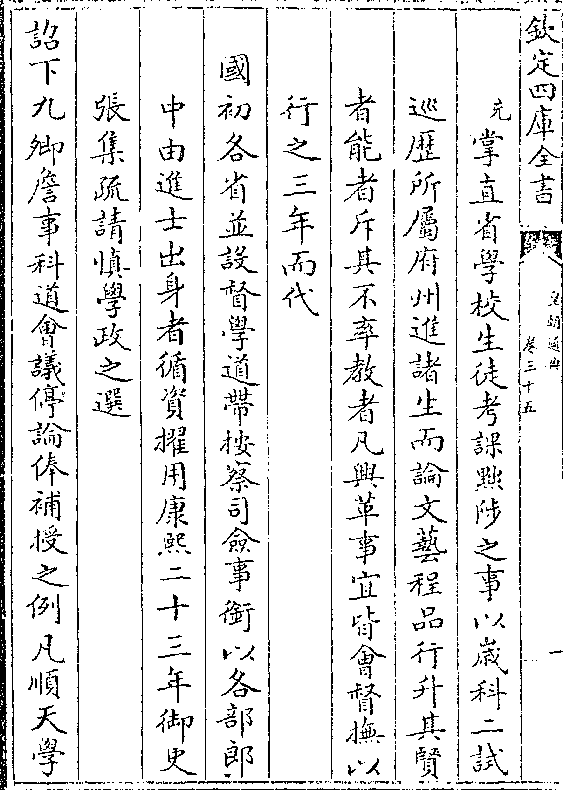 欽定四庫全書
皇朝通典
卷三十五
一
充掌直省學校生徒考課黜陟之事以歲科二試
巡歷所屬府州進諸生而論文藝程品行升其賢
者能者斥其不率教者凡興革事宜皆會督撫以
行之三年而代
國初各省並設督學道帶按察司僉事銜以各部郎
中由進士出身者循資擢用康熙二十三年御史
張集疏請慎學政之選
詔下九卿詹事科道會議停論俸補授之例凡順天學